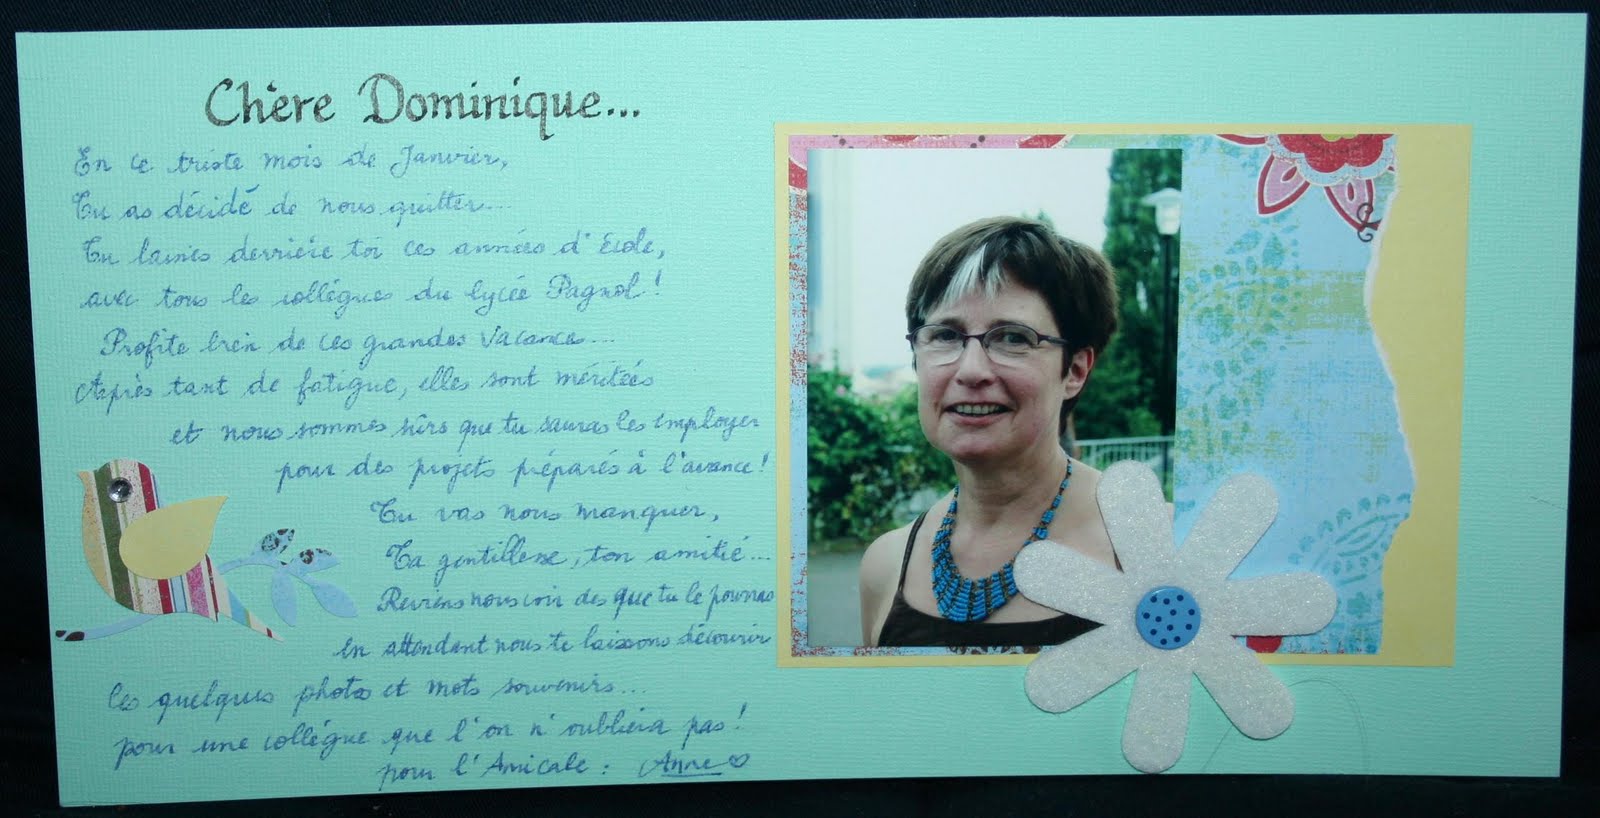 Chère Dominique...
En ce triste mois de Janvier,
Tu as décidé de nous quitter...
Tu laisses derrière toi ces années d'École,
avec tous les collègues du lycée Pagnol !
Profite bien de ces grandes vacances...
Après tant de fatigue, elles sont méritées
et nous sommes sûrs que tu sauras les employer
pour des projets préparés à l'avance !
Tu vas nous manquer,
Ta gentillesse, ton amitié...
Reviens nous voir dès que tu le pourras
en attendant nous te laissons découvrir
Ces quelques photos et mots souvenirs...
pour une collègue que l'on n'oubliera pas !
pour l'Amicale : Anne ♡